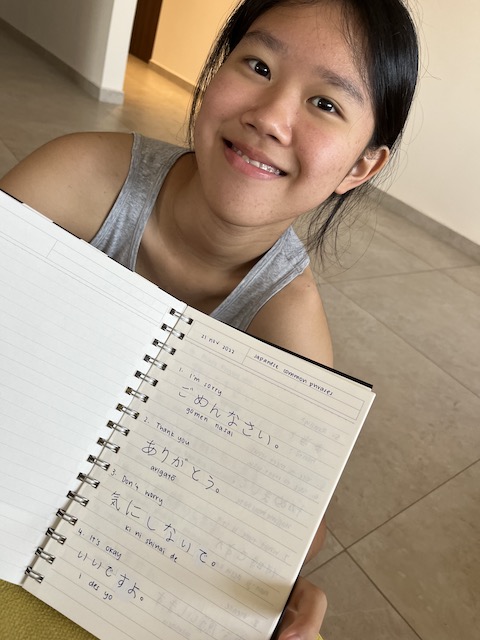 21 Nov 2022
Japanese common phrases
1. I'm sorry
ごめんなさい。
gomen nasai
2. Thank you
ありがとう。
arigatō
3. Don't worry
気にしないで。
ki ni shinai de
4. It's okay
いいですよ。
i des yo